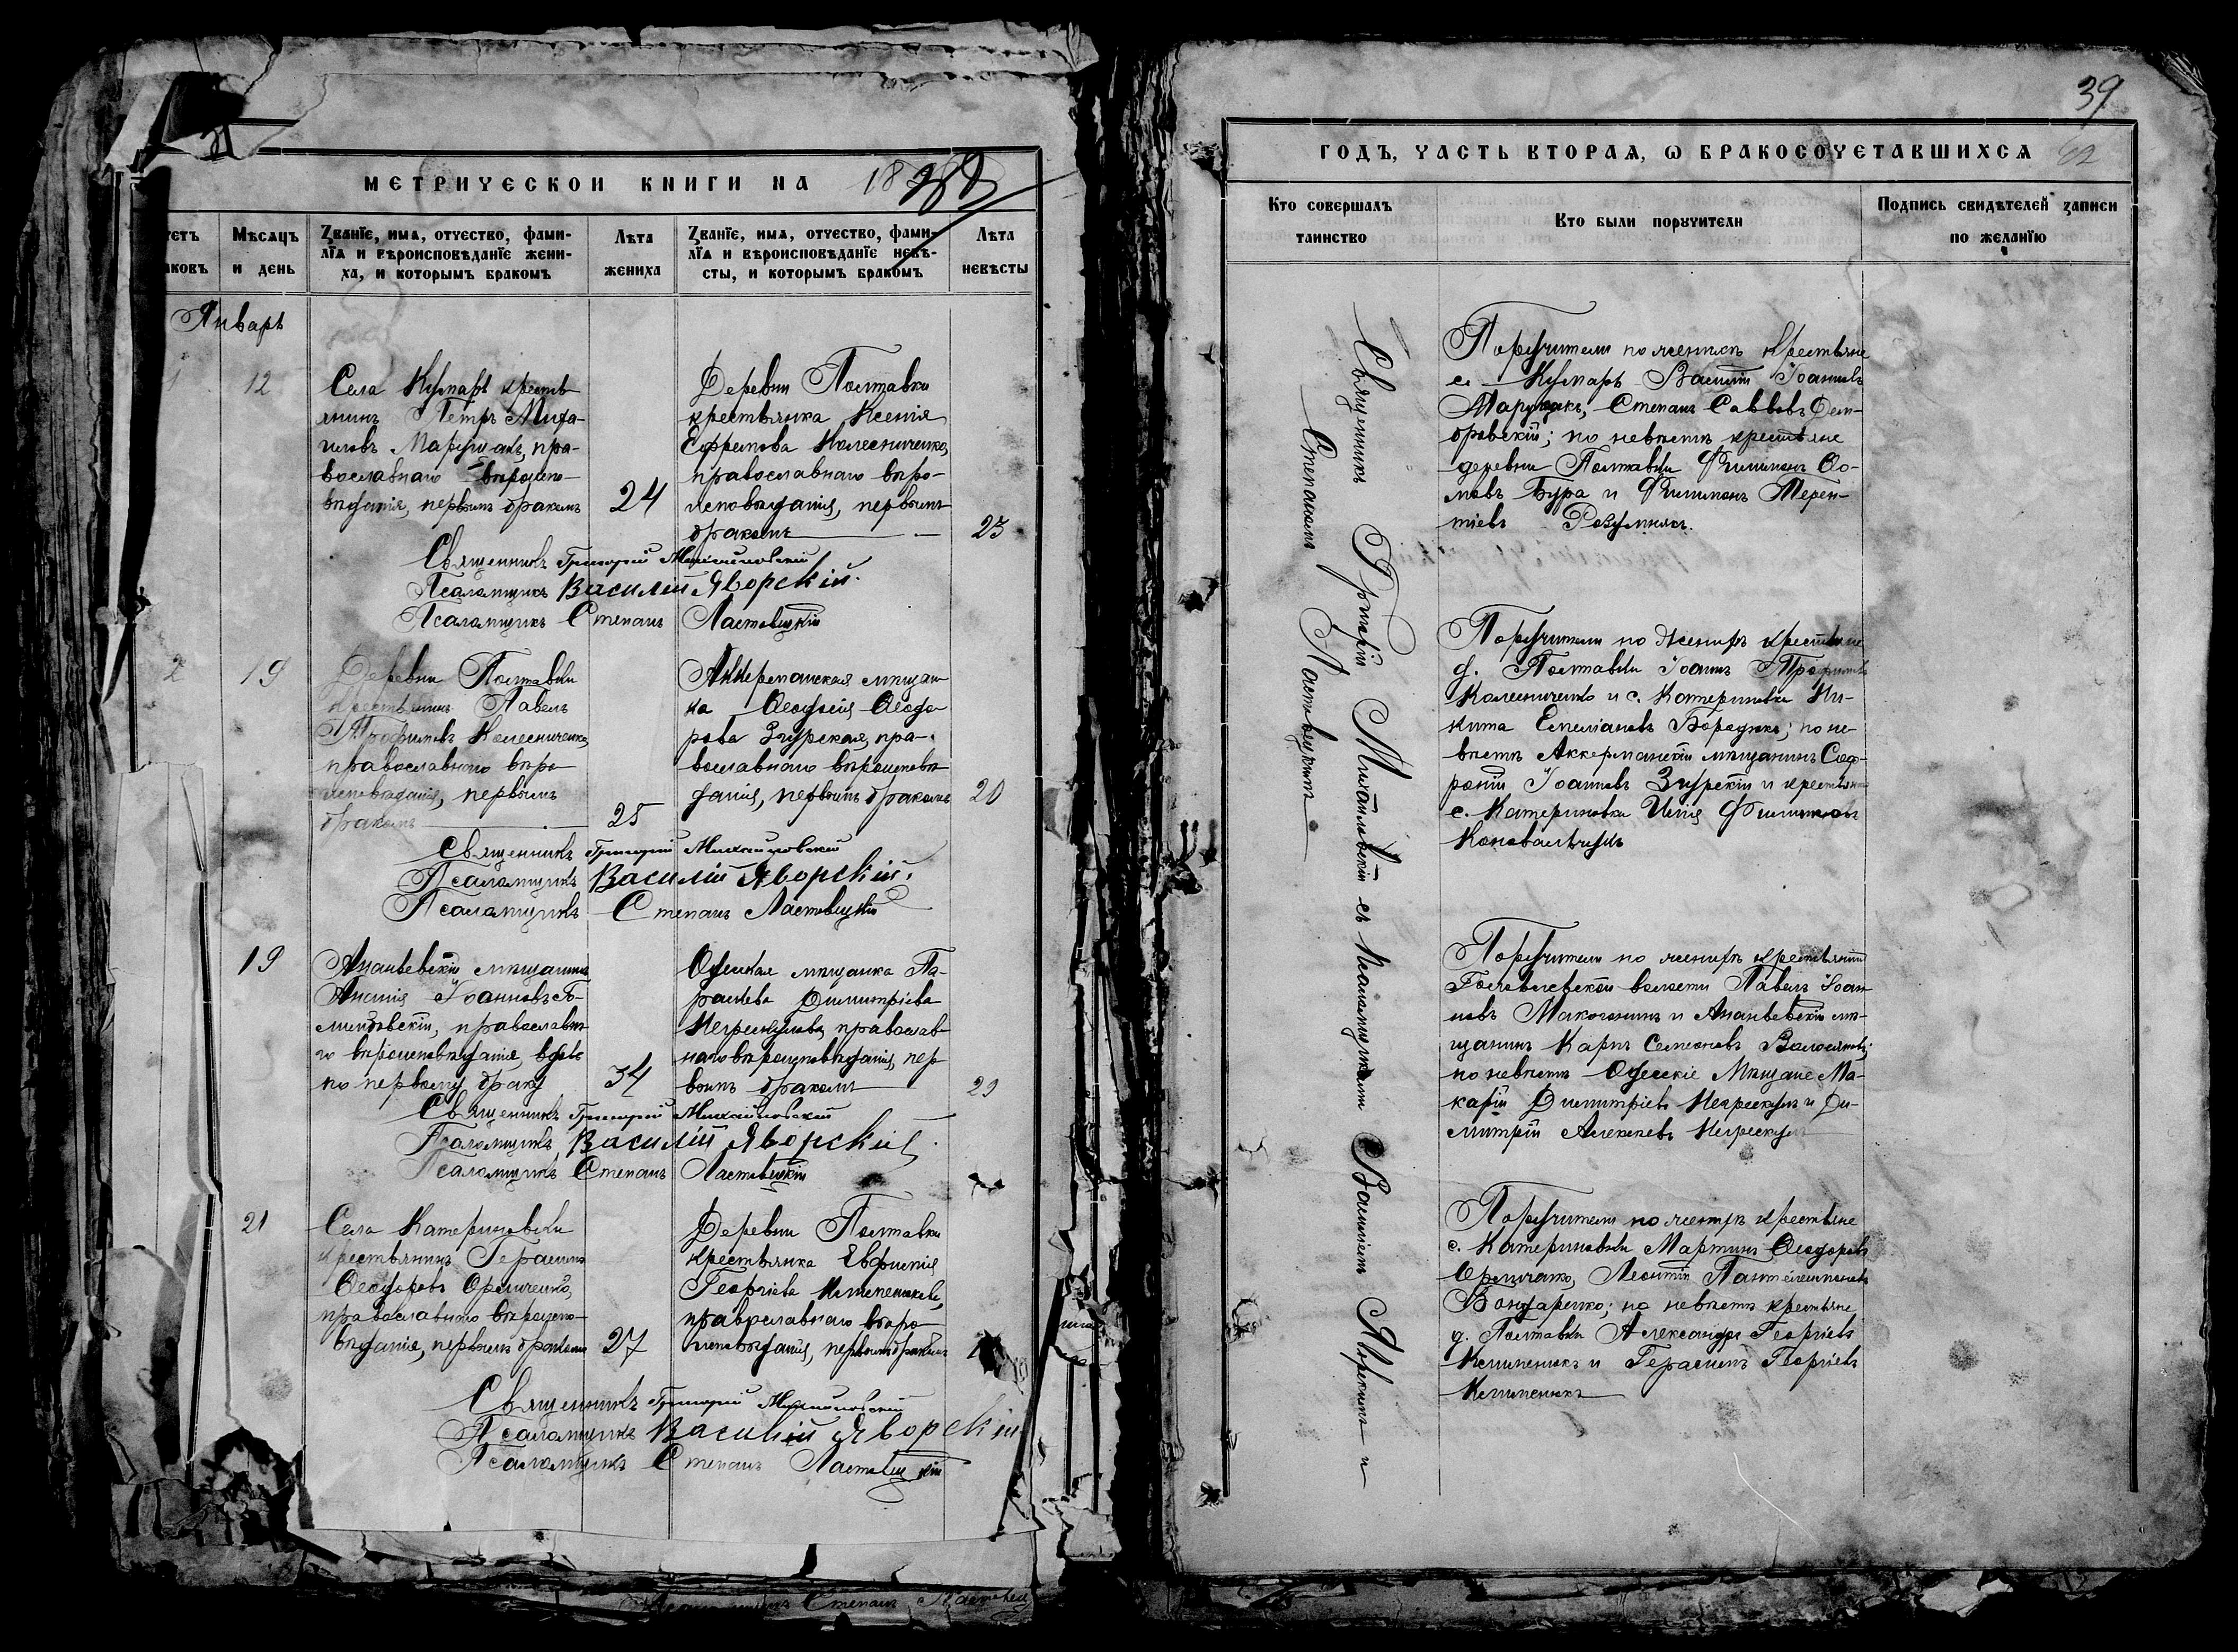 МЕТРИЧЕСКОЙ КНИГИ НА 18
Мѣсяцъ и день
Званїе, имѧ, отчество, фами-
лїѧ и вѣроисповѣданїе жени-
ха, и которымъ бракомъ
Лѣта
жениха
Званїе, имѧ, отчество, фами-
лїѧ и вѣроисповѣданїе невѣ-
сты, и которымъ бракомъ
Лѣта
невѣсты
Январь
1
12
Села Кумаръ кресть-
янинъ Петръ Миха-
иловъ Марущакъ, пра-
вославнаго вѣроиспо-
вѣданія, первымъ бракомъ
24
Деревни Полтавки
крестьянка Ксенія
Ефремова Колесниченко,
православнаго вѣро-
исповѣданія, первымъ
бракомъ
23
Священникъ Григорій Михайловскій
Псаломщикъ Василій Яворскій.
Псаломщикъ Степанъ Ластовецкій
2
19
Деревни Полтавки
крестьянинъ Павелъ
Трофимовъ Колесниченко,
православнаго вѣро-
исповѣданія, первымъ
бракомъ
25
Аккерманская мѣщан-
ка Ѳеодосія Ѳеодо-
рова Згурская, пра-
вославнаго вѣроисповѣ-
данія, первымъ бракомъ
20
Священникъ Григорій Михайловскій
Псаломщикъ Василій Яворскій.
Псаломщикъ Степанъ Ластовецкій
19
Ананьевскій мѣщанинъ
Ананія Іоанновъ
православна-
го вѣроисповѣданія, вдовъ
по первому браку
34
Одесская мѣщанка Па-
раскева Димитріева
православ-
наго вѣроисповѣданія, пер-
вымъ бракомъ
29
Священникъ Григорій Михайловскій
Псаломщикъ Василій Яворскій.
Псаломщикъ Степанъ Ластовецкій
21
Села Катериновки
крестьянинъ Герасимъ
Ѳеодоровъ
православнаго вѣроиспо-
вѣданія, первымъ бракомъ
27
Деревни Полтавки
крестьянка Евфимія
Георгіева
православнаго вѣро-
исповѣданія, первымъ бракомъ
Священникъ Григорій Михайловскій
Псаломщикъ Василій Яворскій
Псаломщикъ Степанъ Ластовецкій
Степанъ
39
ГОДЪ, ЧАСТЬ ВТОРАѦ, Ѡ БРАКОСОЧЕТАВШИХСѦ
Кто совершалъ
таинство
Кто были поручители
Подпись свидѣтелей записи
по желанїю
Священникъ Григорій Михайловскій съ псаломщиками Василіемъ Яворскимъ и
Степаномъ Ластовецкимъ
Поручители по женихѣ крестьяне
с. Кумаръ Василій Іоанновъ
Марущакъ, Степанъ Саввовъ Дом-
бровскій; по невѣстѣ крестьяне
деревни Полтавки Филимонъ Ѳо-
мовъ Бура и Филимонъ Терен-
тіевъ Розумнякъ.
Поручители по женихѣ крестьяне
д. Полтавки Іоаннъ Трофимовъ
Колесниченко и с. Катериновки Ни-
кита Емеліановъ Бородюкъ; по не-
вѣстѣ Аккерманскій мѣщанинъ Соф-
роній Іоанновъ Згурскій и крестьянинъ
с. Катериновки Филимоновъ
Коновальчукъ
Поручители по женихѣ крестьянинъ
волости Павелъ Іоан-
новъ Макогонинъ и Ананьевскій мѣ-
щанинъ Карпъ Семеновъ
по невѣстѣ Одесскіе мѣщане Ма-
карій Димитріевъ и Ди-
митрій Алексѣевъ
Поручители по женихѣ крестьяне
с. Катериновки Мартинъ Ѳеодоровъ
Леонтій Пантелеимоновъ
Бондаренко; по невѣстѣ крестьяне
д. Полтавки Александръ Георгіевъ
и Герасимъ Георгіевъ